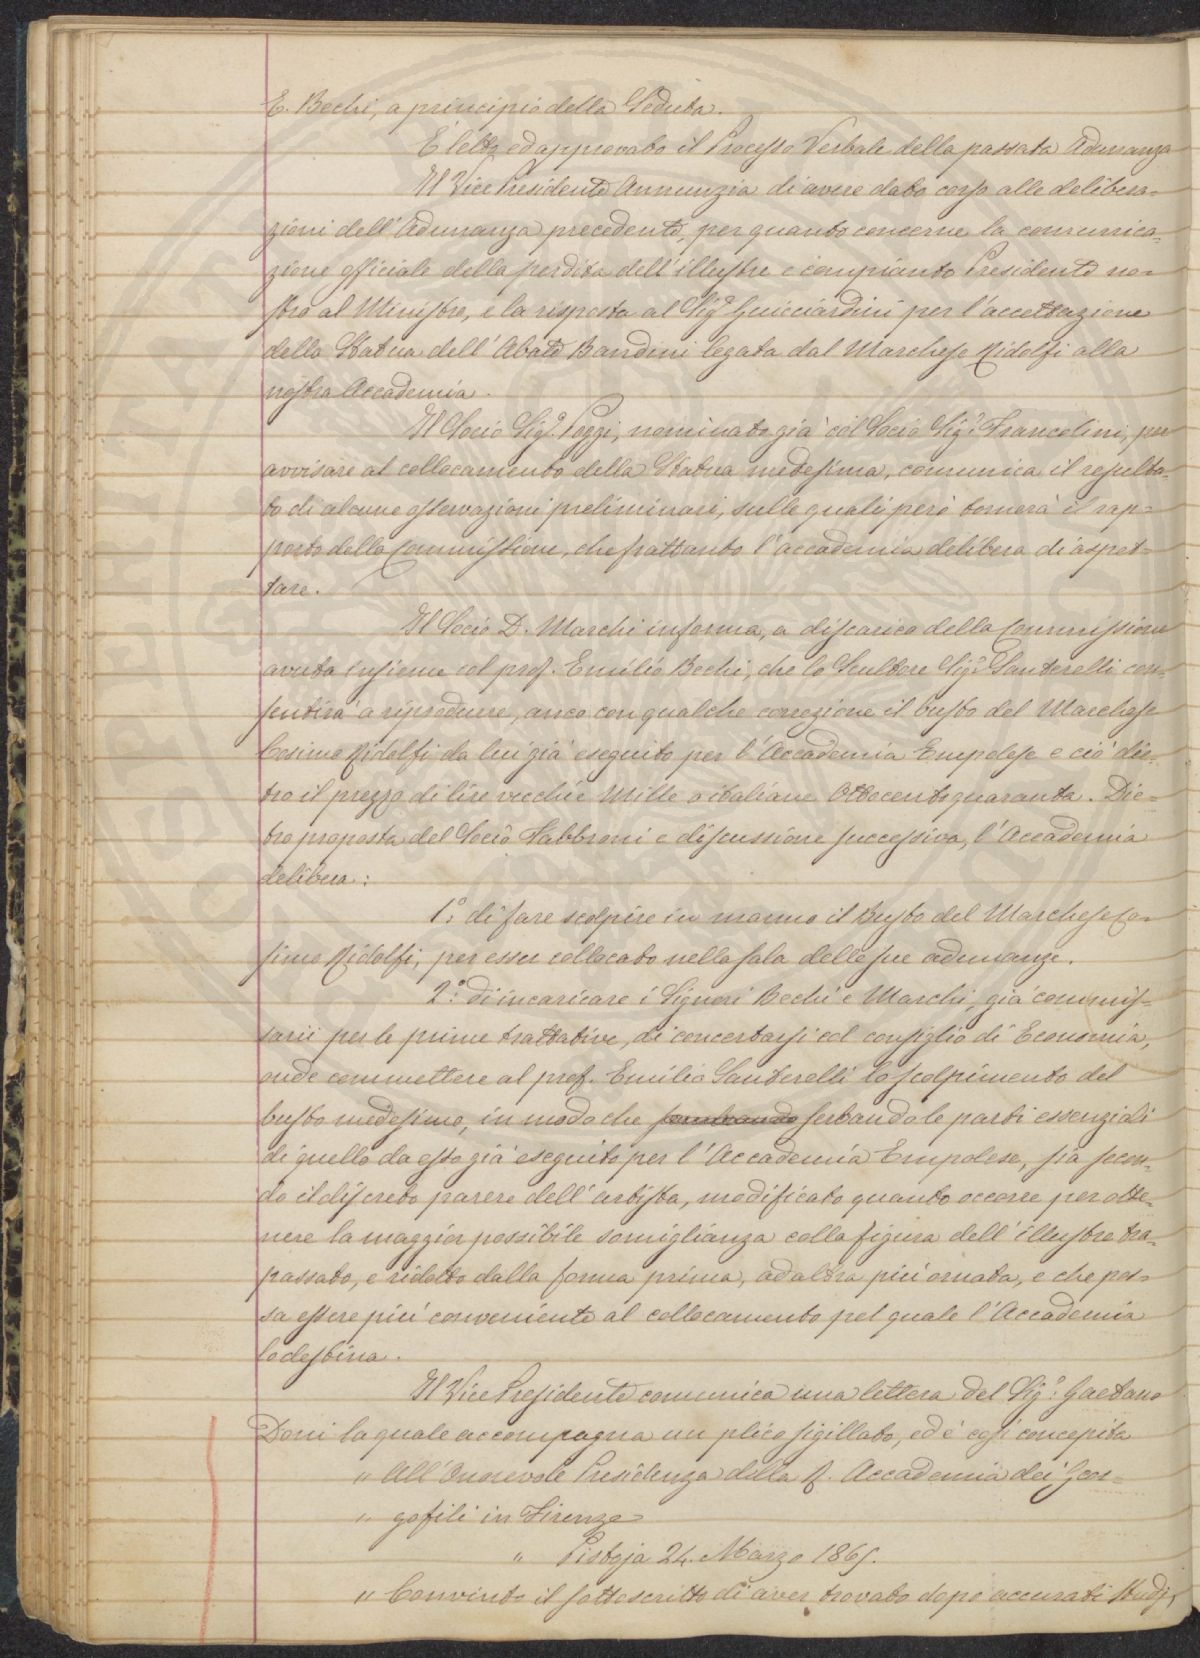 E. Bechi, a principio della Seduta.
È letto ed approvato il Processo Verbale della passata Adunanza
Il Vice Presidente Annunzia di avere dato corso alle delibera-
zioni dell'Adunanza precedente, per quanto concerne la comunica-
zione officiale della perdita dell'illustre e compianto Presidente no-
stro al Ministro, e la risposta al Sigr Guicciardini per l'accettazione
della Statua dell'Abate Bandini legata dal Marchese Ridolfi alla
nostra Accademia.
Il Socio Sigr. Poggi, nominato già col Socio Sigr. Francolini, per
avvisare al collocamento della Statua medesima, comunica il resulta-
to di alcune osservazioni preliminari, sulle quali però tornerà il rap-
porto della Commissione, che frattanto l'accademia delibera di aspet-
tare.
Il Socio D. Marchi informa, a discarico della Commissione
avuta insieme col prof. Emilio Bechi, che lo Scultore Sigr. Santarelli con-
sentirà a riprodurre, anco con qualche correzione il busto del Marchese
Cosimo Ridolfi da lui già eseguito per l'Accademia Empolese e ciò die-
tro il prezzo di lire vecchie Mille o italiane Ottocentoquaranta. Die-
tro proposta del Socio Fabbroni e discussione successiva, l'Accademia
delibera:
1.° di fare scolpire in marmo il Busto del Marchese Co-
simo Ridolfi, per esser collocato nella sala delle sue adunanze.
2.° di incaricare i Signori Bechi e Marchi, già commis-
sarii per le prime trattative, di concertarsi col consiglio di Economia,
onde commettere al prof. Emilio Santerelli lo scolpimento del
busto medesimo, in modo che serbando le parti essenziali
di quello da esso già eseguito per l'Accademia Empolese, sia secon-
do il discreto parere dell'artista, modificato quanto occorre per otte-
nere la maggior possibile somiglianza colla figura dell'illustre tra-
passato, e ridotto dalla forma prima, ad altra più ornata, e che pos-
sa essere più conveniente al collocamento pel quale l'Accademia
lo destina.
Il Vice Presidente comunica una lettera del Sigr. Gaetano
Doni la quale accompagna un plico sigillato, ed è così concepita
" All'Onorevole Presidenza della R. Accademia dei Geor-
" gofili in Firenze
" Pistoja 24. Marzo 1865.
" Convinto il sottoscritto di aver trovato dopo accurati Studj,